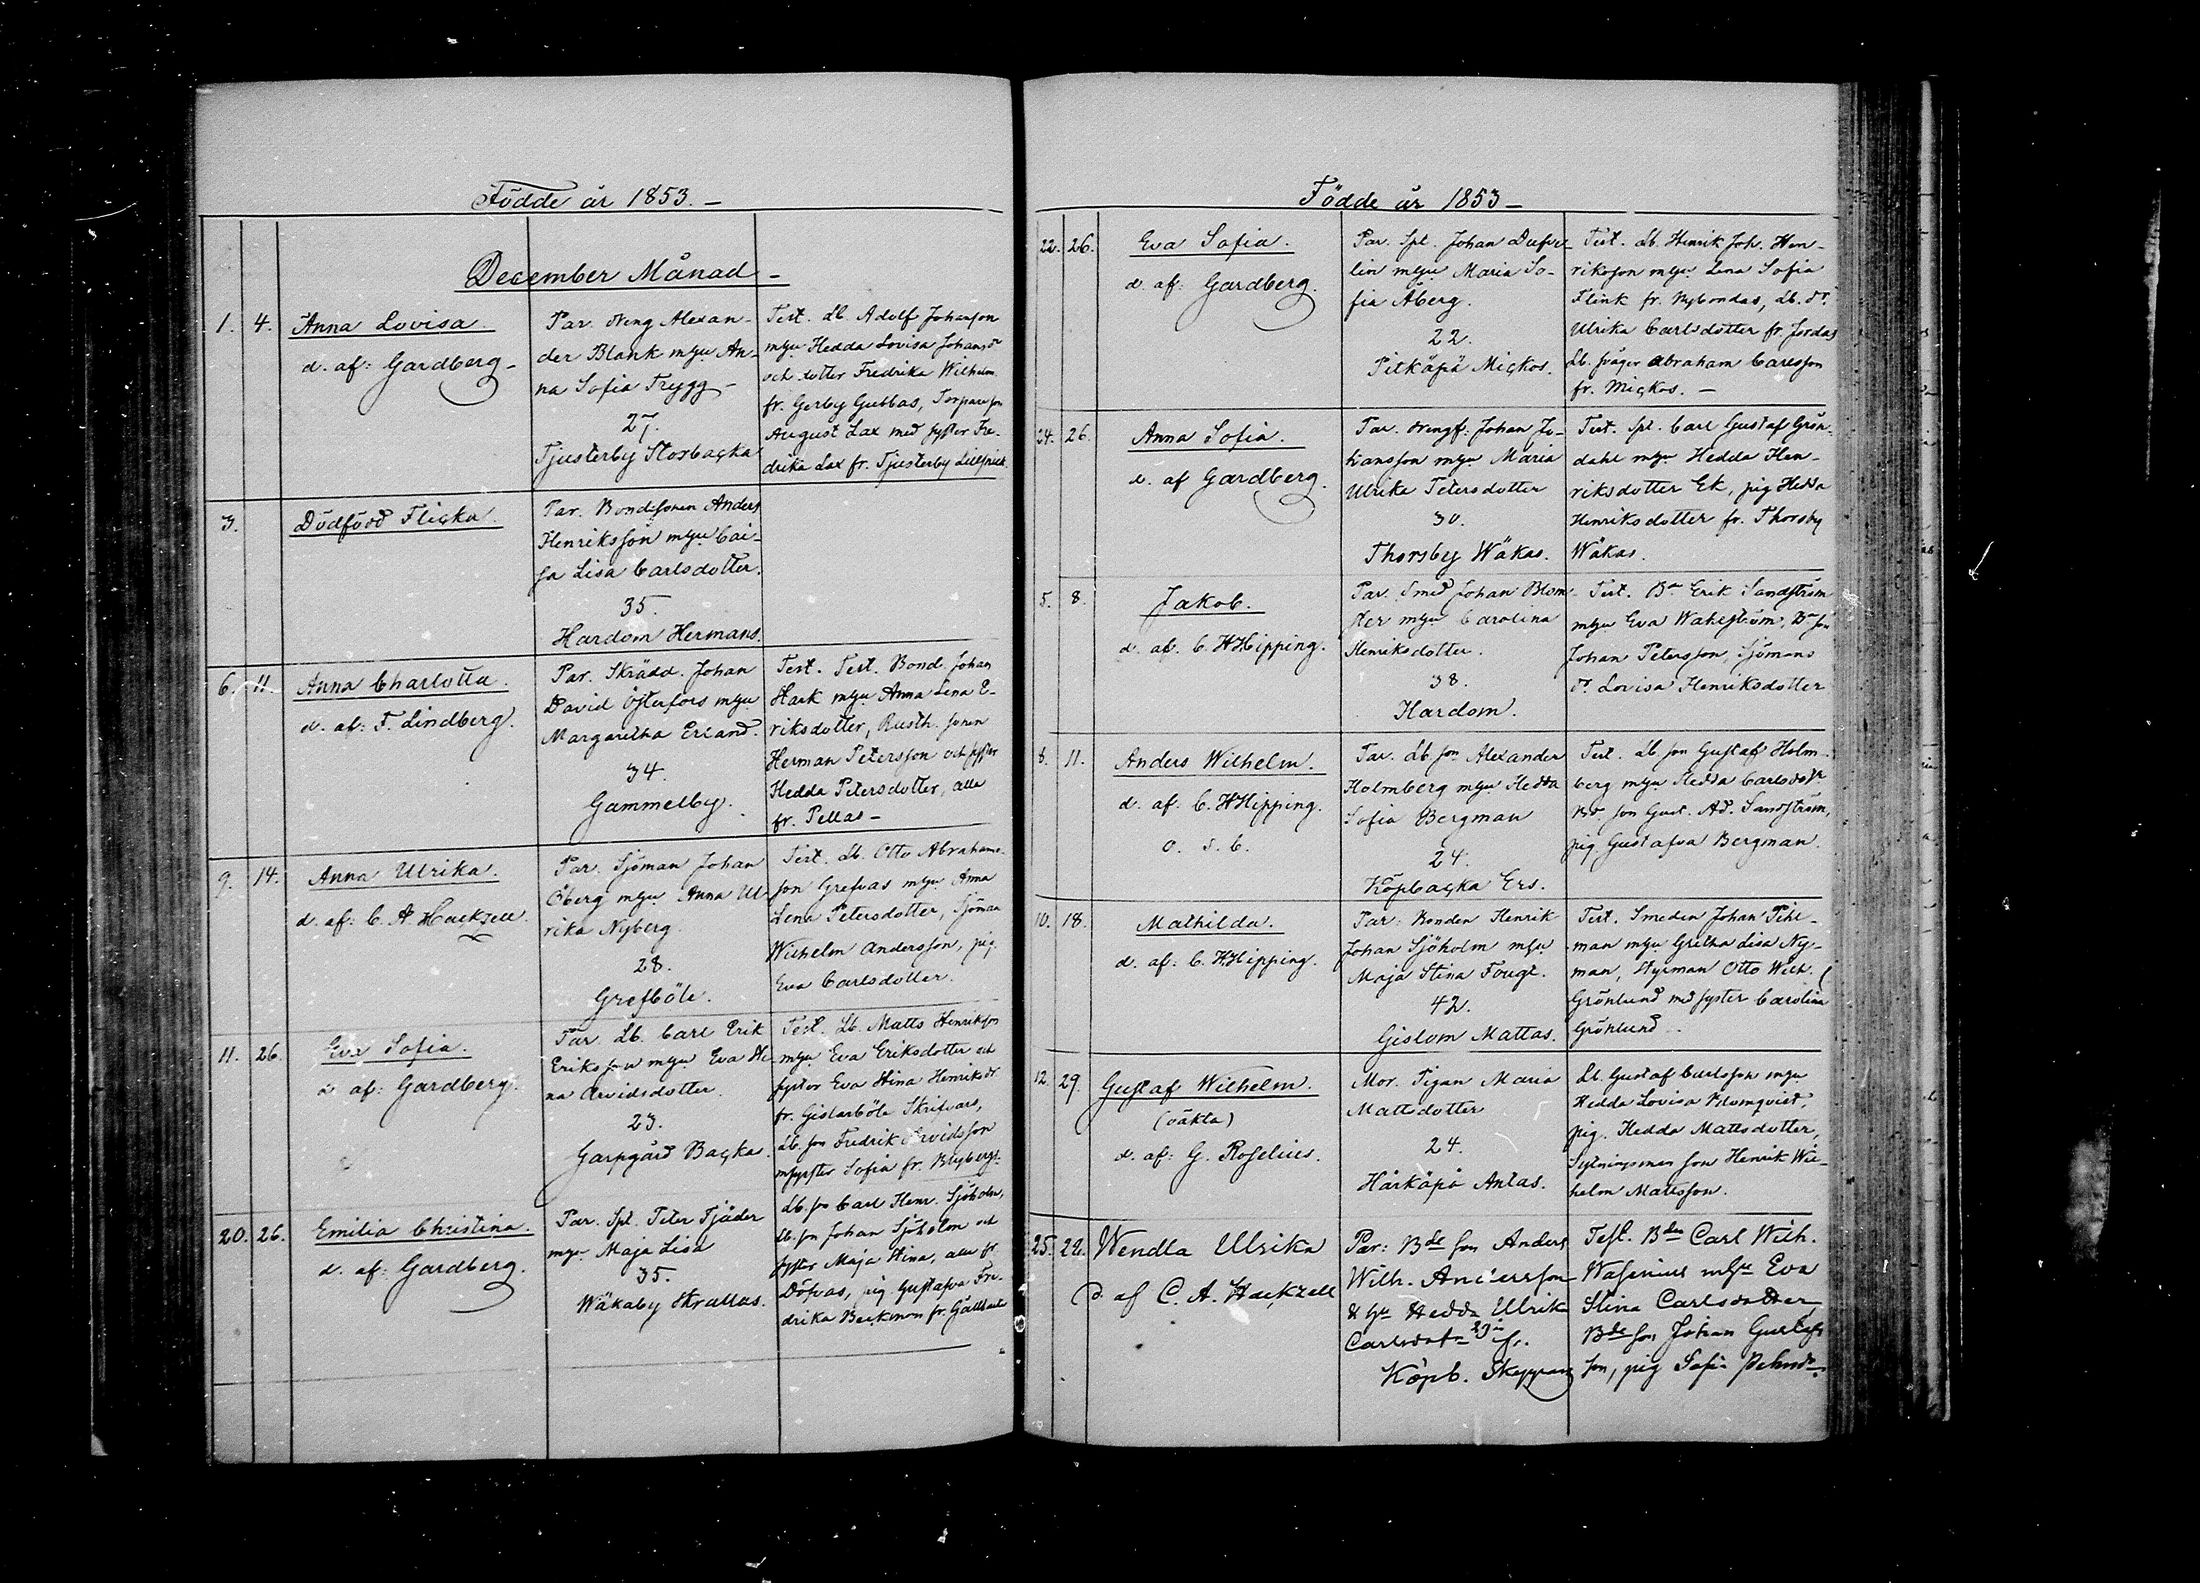 Födde år 1853. –
December Månad –
1. 4. Anna Lovisa
d. af: Gardberg –
Par. Dräng Alexan-
der Blank m hu An-
na Sofia Trygg –
27.
Tjusterby Storbacka
Test. Lb. Adolf Johansson
m hu Hedda Lovisa Johansdr
och dotter Fredrika Wilhelm.
fr. Gerby Gubbas, Torpareson
August Lax med syster Fre-
drika Lax fr. Tjusterby
3. Dödfödd Flicka.
Par. Bondesonen Anders
Henriksson m hu Cai-
sa Lisa Carlsdotter.
35.
Hardom Hermans.
6. 11. Anna Charlotta.
d. af: F. Lindberg.
Par. Skrädd. Johan
David Österfors m hu
Margaretha Erland.
34.
Gammelby.
Test. Test. Bond. Johan
Hark m hu Anna Lena E-
riksdotter, Rusth. sonen
Herman Petersson och syster
Hedda Petersdotter, alla
fr. Pellas –
9. 14. Anna Ulrika.
d. af: C. A. Hackzell
Par. Sjöman Johan
Öberg m hu Anna Ul-
rika Nyberg.
28.
Grefböle.
Test. Lb. Otto Abrahams-
son Grefvas m hu Anna
Lena Petersdotter, Sjöman
Wilhelm Andersson, pig.
Eva Carlsdotter.
11. 26. Eva Sofia.
d. af: Gardberg.
Par. Lb. Carl Erik
Eriksson m hu Eva He-
na Arvidsdotter.
23.
Garpgård Backas.
Test. Lb. Matts Henriksson
m hu Eva Eriksdotter och
syster Eva Stina Henriksdr
fr. Gislarböle Skrifvars,
Lb. son Fredrik Arvidsson
m syster Sofia fr.
20. 26. Emilia Christina.
d. af: Gardberg.
Par. Spl. Peter Tjäder
m hu Maja Lisa
35.
Wäkaby Skrallas.
Lb. son Carl Henr. Sjöholm,
Lb. son Johan Sjöholm och
syster Maja Stina, alla fr.
Döfvas, pig Gustafva Fre-
drika Beckman fr.
Födde år 1853 –
22. 26. Eva Sofia.
d. af: Gardberg.
Par. Spl. Johan Dufve-
lin m hu Maria So-
fia Åberg.
22.
Pitkäpä Mickos.
Test. Lb. Henrik Joh. Hen-
riksson m hu Lena Sofia
Flink fr. Nybondas, Lb. dr
Ulrika Carlsdotter fr Jordas
Lb. svåger Abraham Carlsson
fr. Mickos. –
24. 26. Anna Sofia.
d. af Gardberg.
Par. Drengf: Johan Jo-
hansson m hu Maria
Ulrika Petersdotter
30.
Thorsby Wäkas.
Test. Spl. Carl Gustaf Grön-
dahl m hu Hedda Hen-
riksdotter Ek, pig Hedda
Henriksdotter fr. Thorsby
Wäkas.
5. 8. Jakob.
d. af. C. H Hipping.
Par. Smed Johan Blom-
ster m hu Carolina
Henriksdotter.
38.
Hardom.
Test. Bn Erik Sandström
m hu Eva Wahlström, Bn son
Johan Petersson, Sjömans
dr Lovisa Henriksdotter
8. 11. Anders Wilhelm.
d. af: C. H Hipping.
o. s. b.
Par. Lb. son Alexander
Holmberg m hu Hedda
Sofia Bergman
24.
Köpbacka Ers.
Test. Lb. son Gustaf Holm-
berg m hu Hedda Carlsdotr
Bd. son Gust. Ad. Sandström,
pig Gustafva Bergman.
10. 18. Mathilda.
d. af: C. H Hipping.
Par: Bonden Henrik
Johan Sjöholm m hu
Maja Stina Fougt.
42.
Gislom Mattas.
Test. Smeden Johan Pihl-
man m hu Gretha Lisa Ny-
man, Styrman Otto Wilh.
Grönlund med syster Carolina
Grönlund –
12. 29. Gustaf Wilhelm.
(oäkta)
d. af: G. Roselius.
Mor. Pigan Maria
Mattsdotter
24.
Härkäpä Antas.
Lb. Gustaf Carlsson m hu
Hedda Lovisa Blomqvist,
pig. Hedda Mattsdotter,
Sytningsman son Henrik Wil-
helm Mattsson.
25. 29. Wendla Ulrika
d. af C. A. Hackzell
Par: Bde son Anders
Wilh. Andersson
& hu Hedda Ulrik
Carlsdotr
Köpb. Skeppars
Test. Bden Carl Wilh.
Wasenius m hu Eva
Stina Carlsdotter
Bde son Johan Gustafs
son, pig Sofia